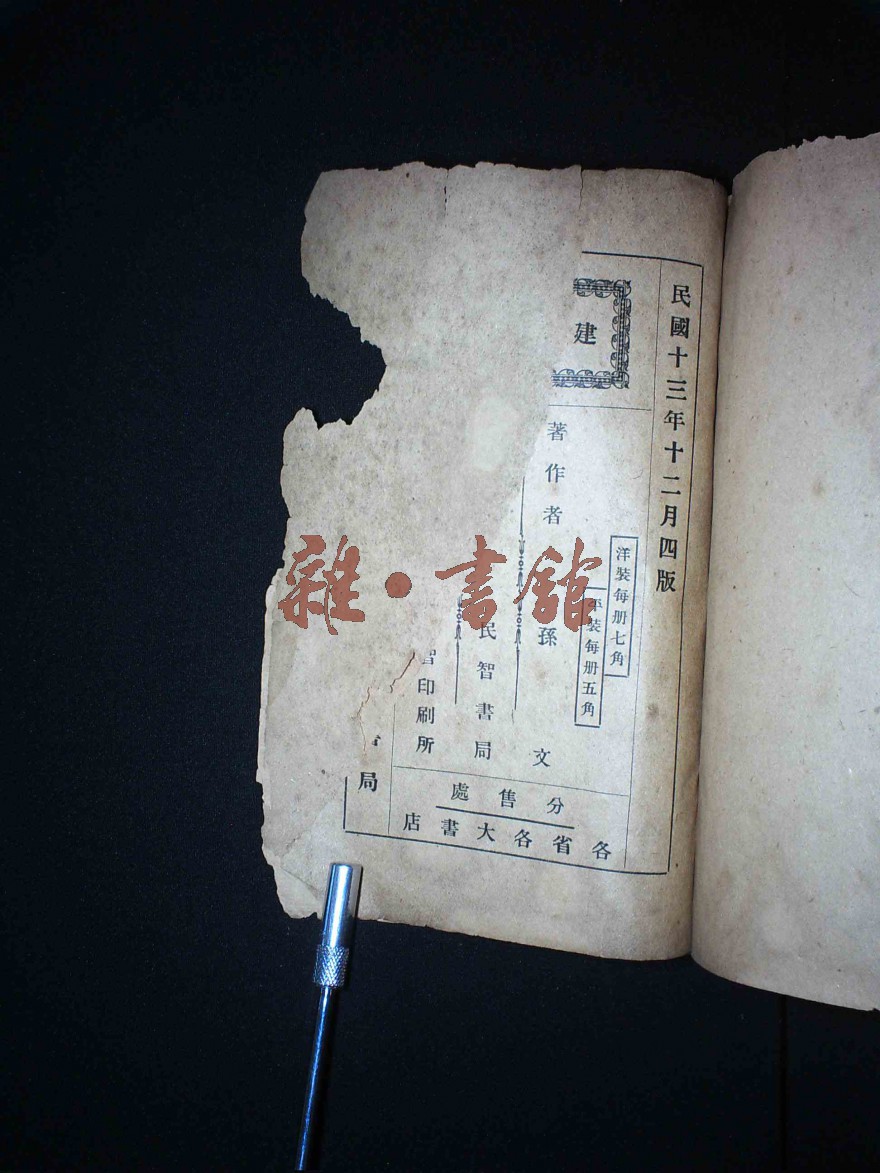 民國十三年十二月四版
洋裝每册七角
平裝每册五角
建
著作者 孫文
民智書局
智印刷所
局
分售處
各省各大書店
雜·書館